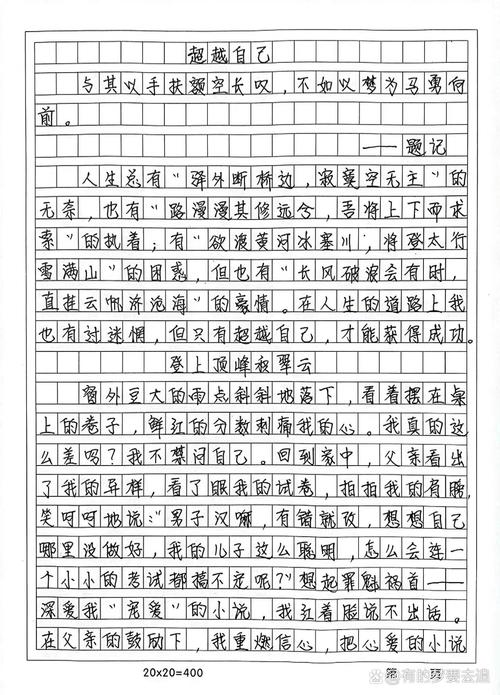 超越自己
与其以手扶额空长叹，不如以梦为马勇向
前。
——题记
人生总有“驿外断桥边，寂寞空无主”的
无奈，也有“路漫漫其修远兮，吾将上下而求
索”的执着；有“欲渡黄河冰塞川，将登太行
雪满山”的困惑，但也有“长风破浪会有时，
直挂云帆济沧海”的豪情。在人生的道路上我
也有过迷惘，但只有超越自己，才能获得成功。
登上顶峰积翠云
窗外豆大的雨点斜斜地落下，看着摆在桌
上的卷子，鲜红的分数刺痛我的心。我真的这
么差吗？我不禁问自己。回到家中，父亲看出
了我的异样，看了眼我的试卷，拍拍我的肩膀，
笑呵呵地说：“男子汉嘛，有错就改，想想自己
哪里没做好，我的儿子这么聪明，怎么会连一
个小小的考试都搞不定呢？”想起罪魁祸首——
深爱我“宠爱”的小说，我红着脸说不出话。
在父亲的鼓励下，我重燃信心，把心爱的小说
20x20=400
第 页
有的梦要去追